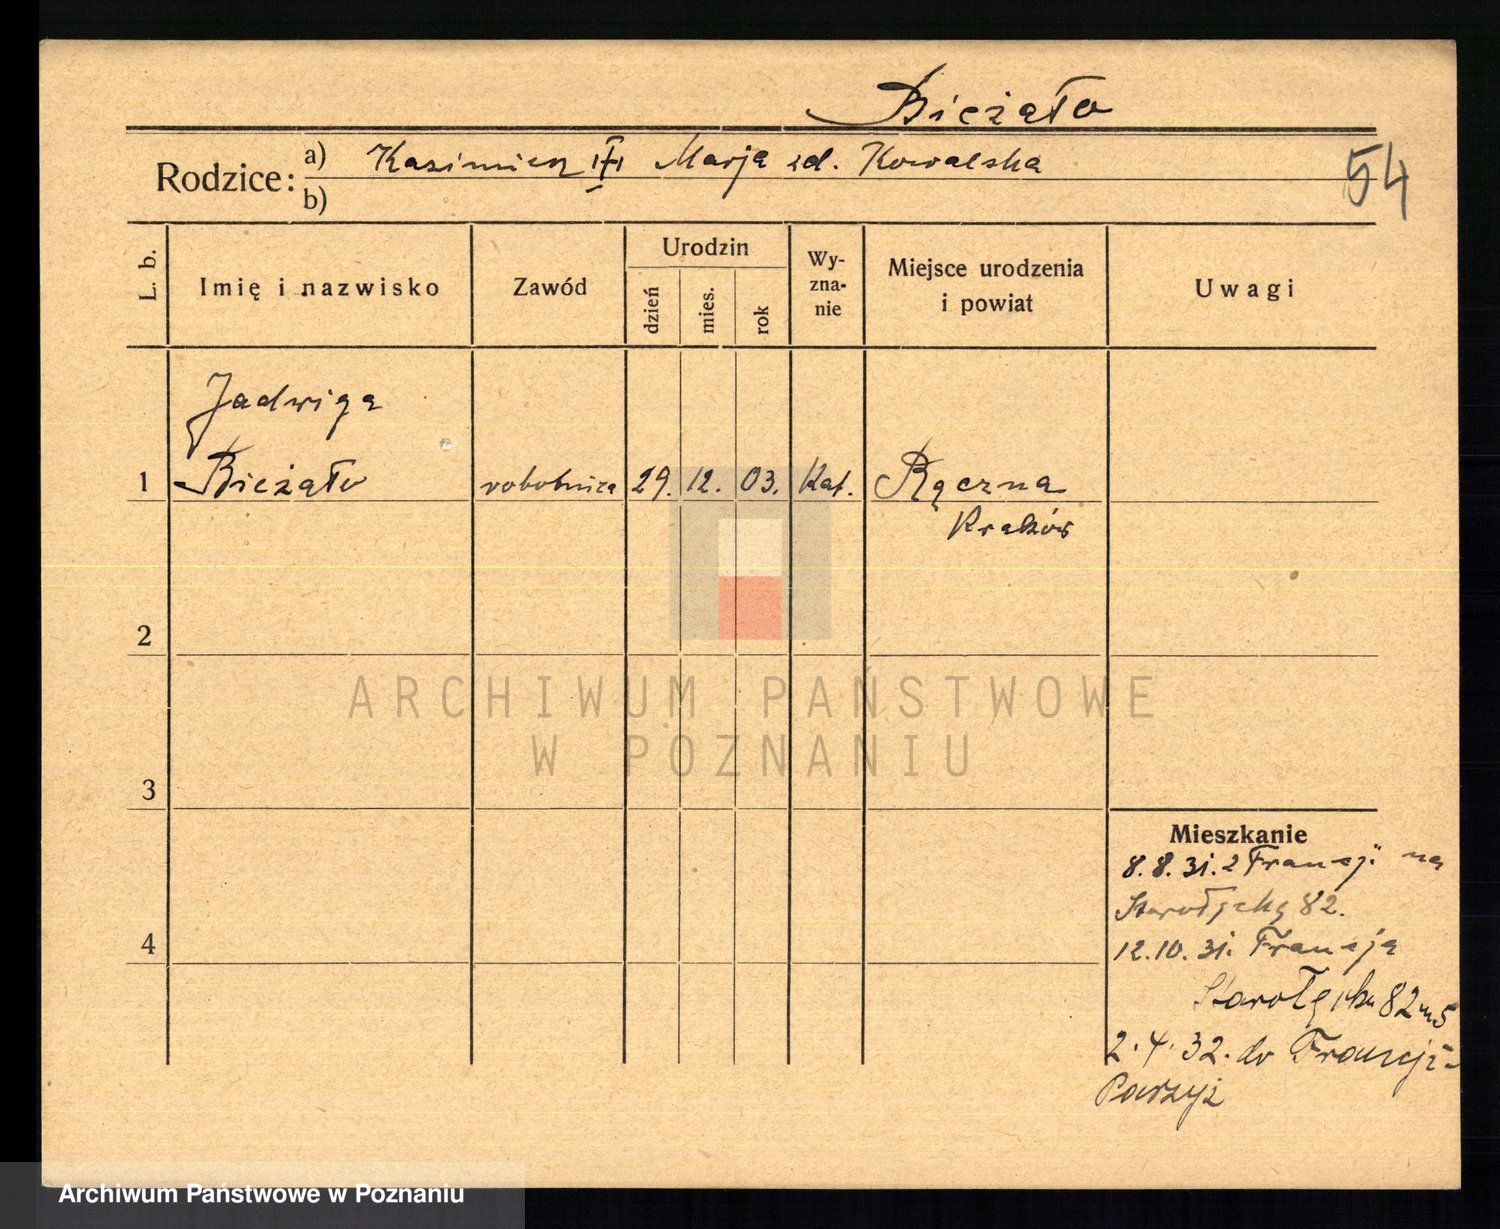 Bieżało
Rodzice: a) Kazimierz Marja zd. Kowalska
b)
54
L. b.
Imię i nazwisko
Zawód
Urodzin
dzień
mies.
rok
Wy-
zna-
nie
Miejsce urodzenia
i powiat
Uwagi
Jadwiga
1 Bieżało robotnica 29. 12. 03. Kat. Rączna
Kraków
2
ARCHIWUM PAŃSTWOWE
W POZNANIU
3
Mieszkanie
8.8.31. z Francji na
Starołęcką 82.
4
12.10.31. Francja
Starołęcka 82 m 5
2.4.32. do Francji-
Paryż
Archiwum Państwowe w Poznaniu